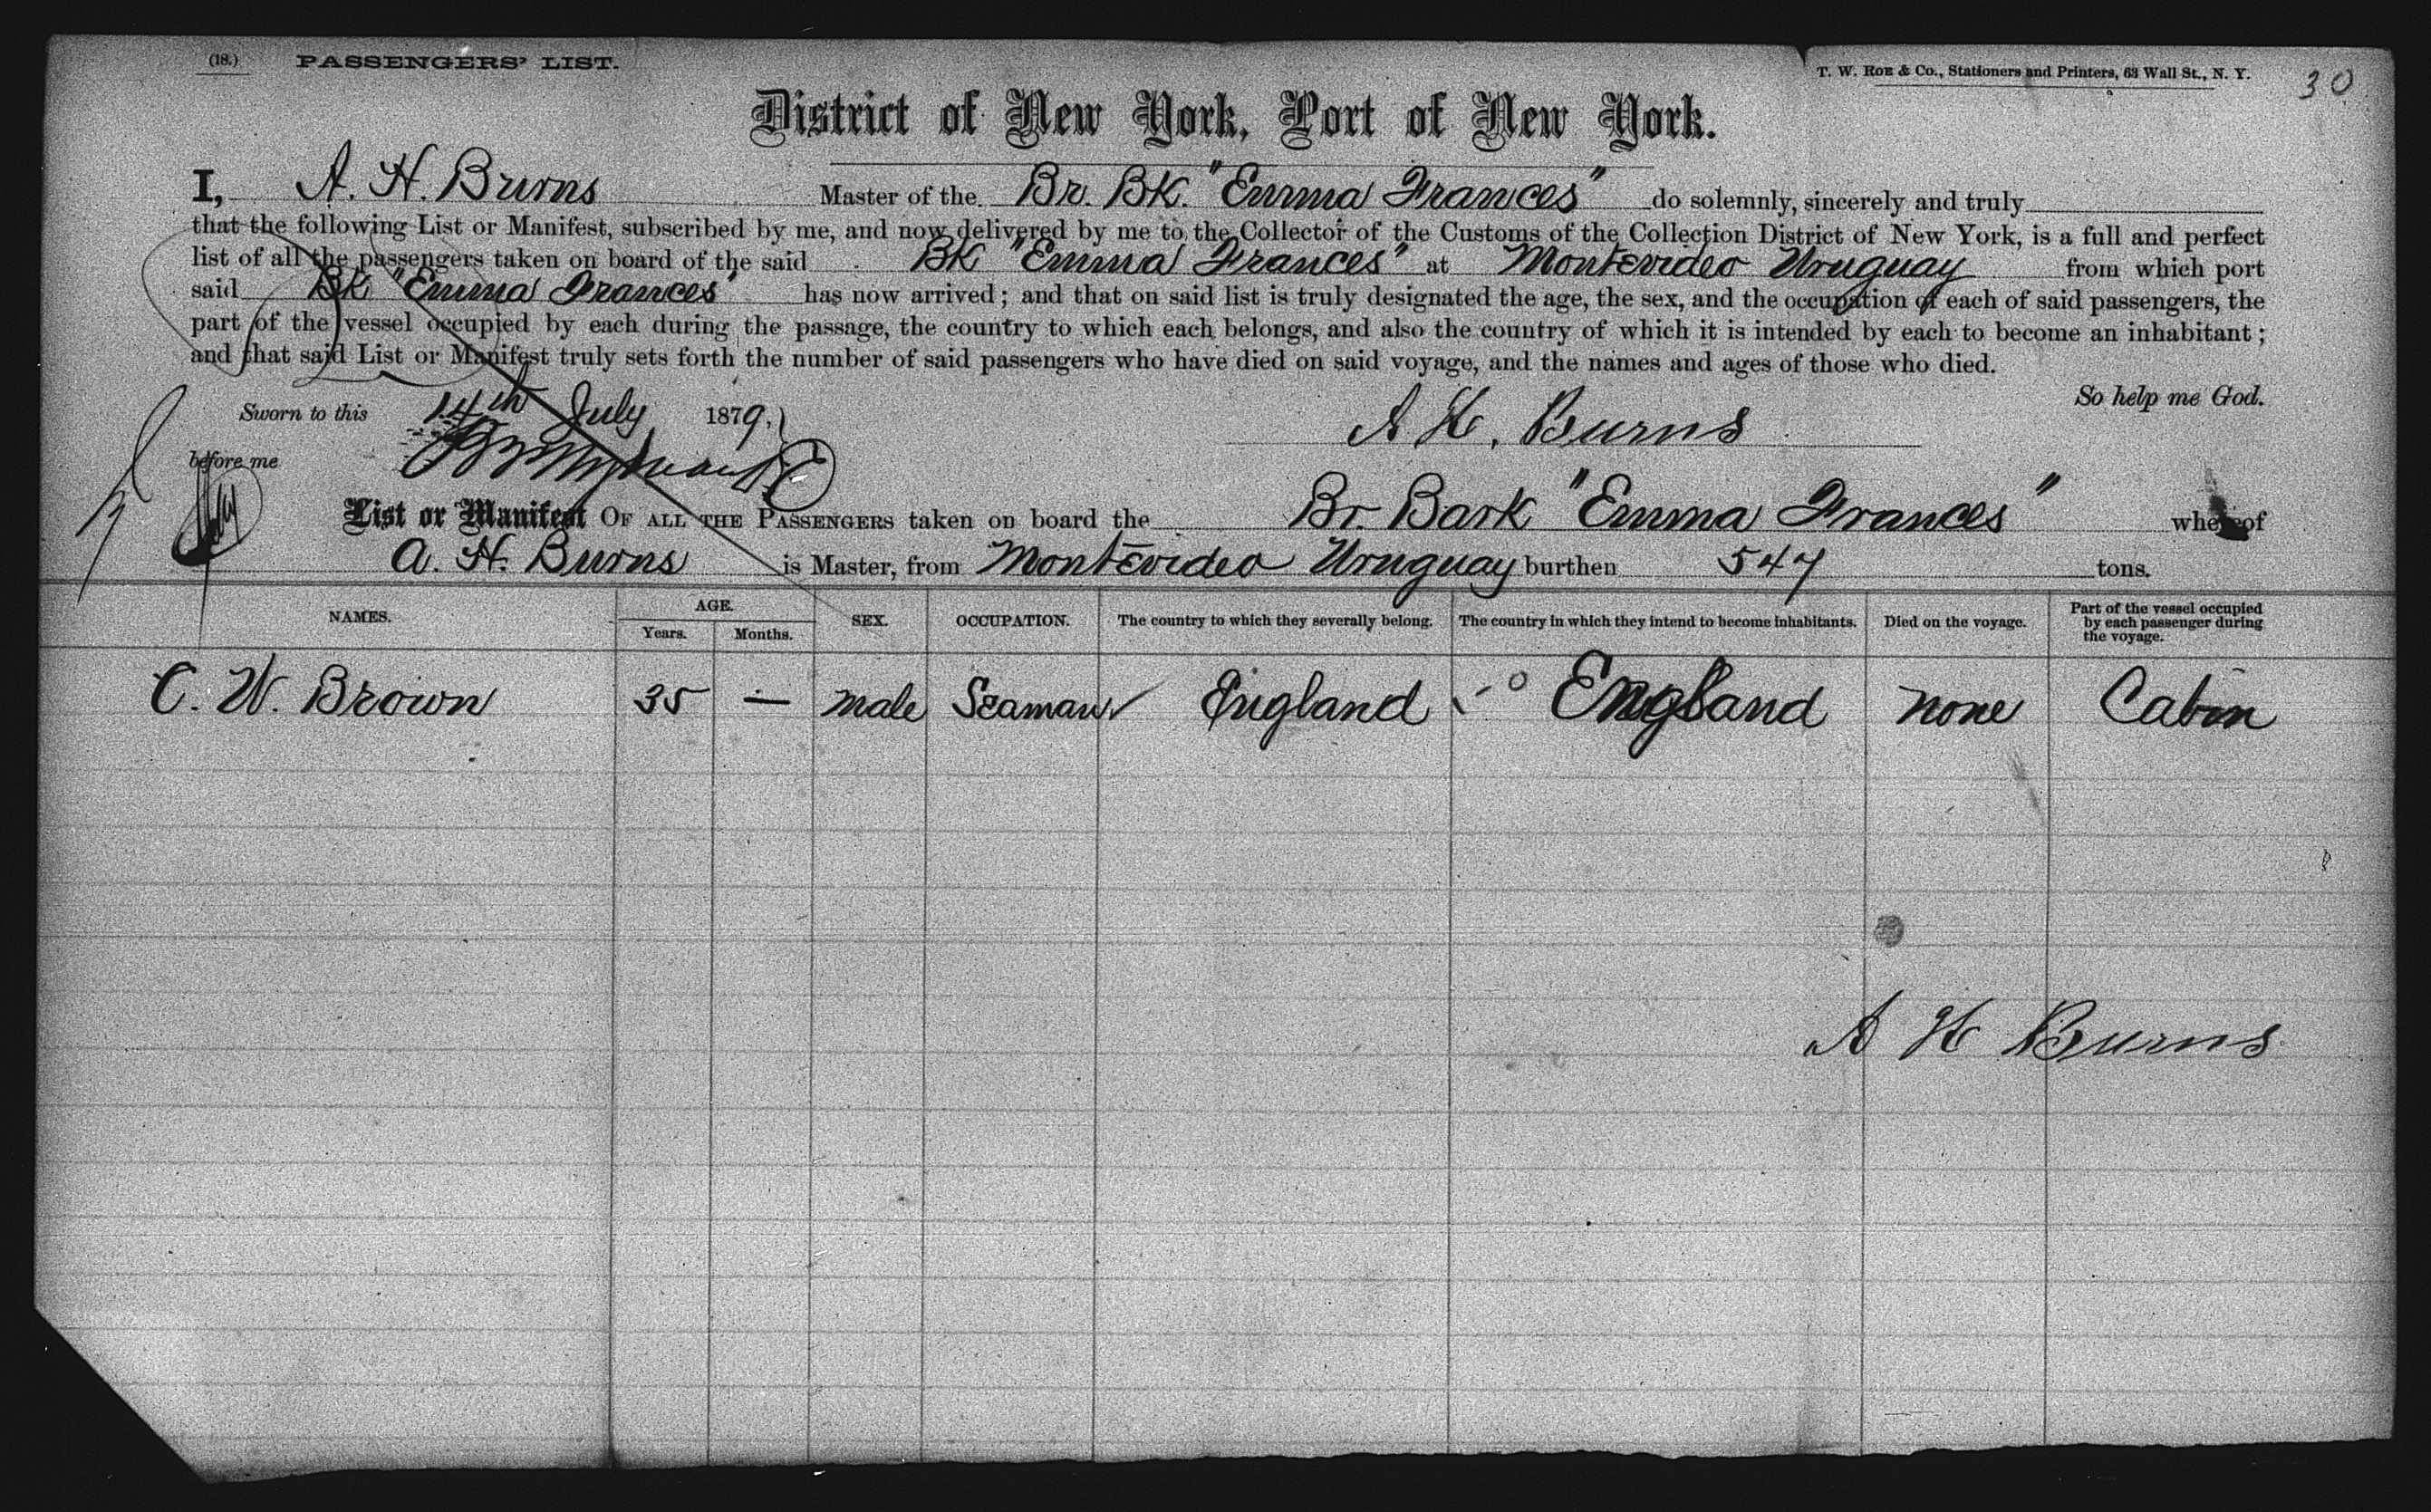 (18.) PASSENGERS' LIST.
T. W. ROE & Co., Stationers and Printers, 63 Wall St., N. Y.
30
District of New York, Port of New York.
I, A. H. Burns Master of the Br. Bk. "Emma Frances" do solemnly, sincerely and truly
that the following List or Manifest, subscribed by me, and now delivered by me to the Collector of the Customs of the Collection District of New York, is a full and perfect
list of all the passengers taken on board of the said Bk "Emma Frances" at Montevideo Uruguay from which port
said Bk "Emma Frances" has now arrived; and that on said list is truly designated the age, the sex, and the occupation of each of said passengers, the
part of the vessel occupied by each during the passage, the country to which each belongs, and also the country of which it is intended by each to become an inhabitant;
and that said List or Manifest truly sets forth the number of said passengers who have died on said voyage, and the names and ages of those who died.
So help me God.
Sworn to this 14th July 1879.
A H. Burns
before me
List or Manifest OF ALL THE PASSENGERS taken on board the Br. Bark "Emma Frances" whereof
A. H. Burns is Master, from Montevideo Uruguay burthen 547 tons.
NAMES. AGE. Years. Months. SEX. OCCUPATION. The country to which they severally belong. The country in which they intend to become inhabitants. Died on the voyage. Part of the vessel occupied by each passenger during the voyage.
C. W. Brown 35 — male Seaman England England none Cabin
A H Burns